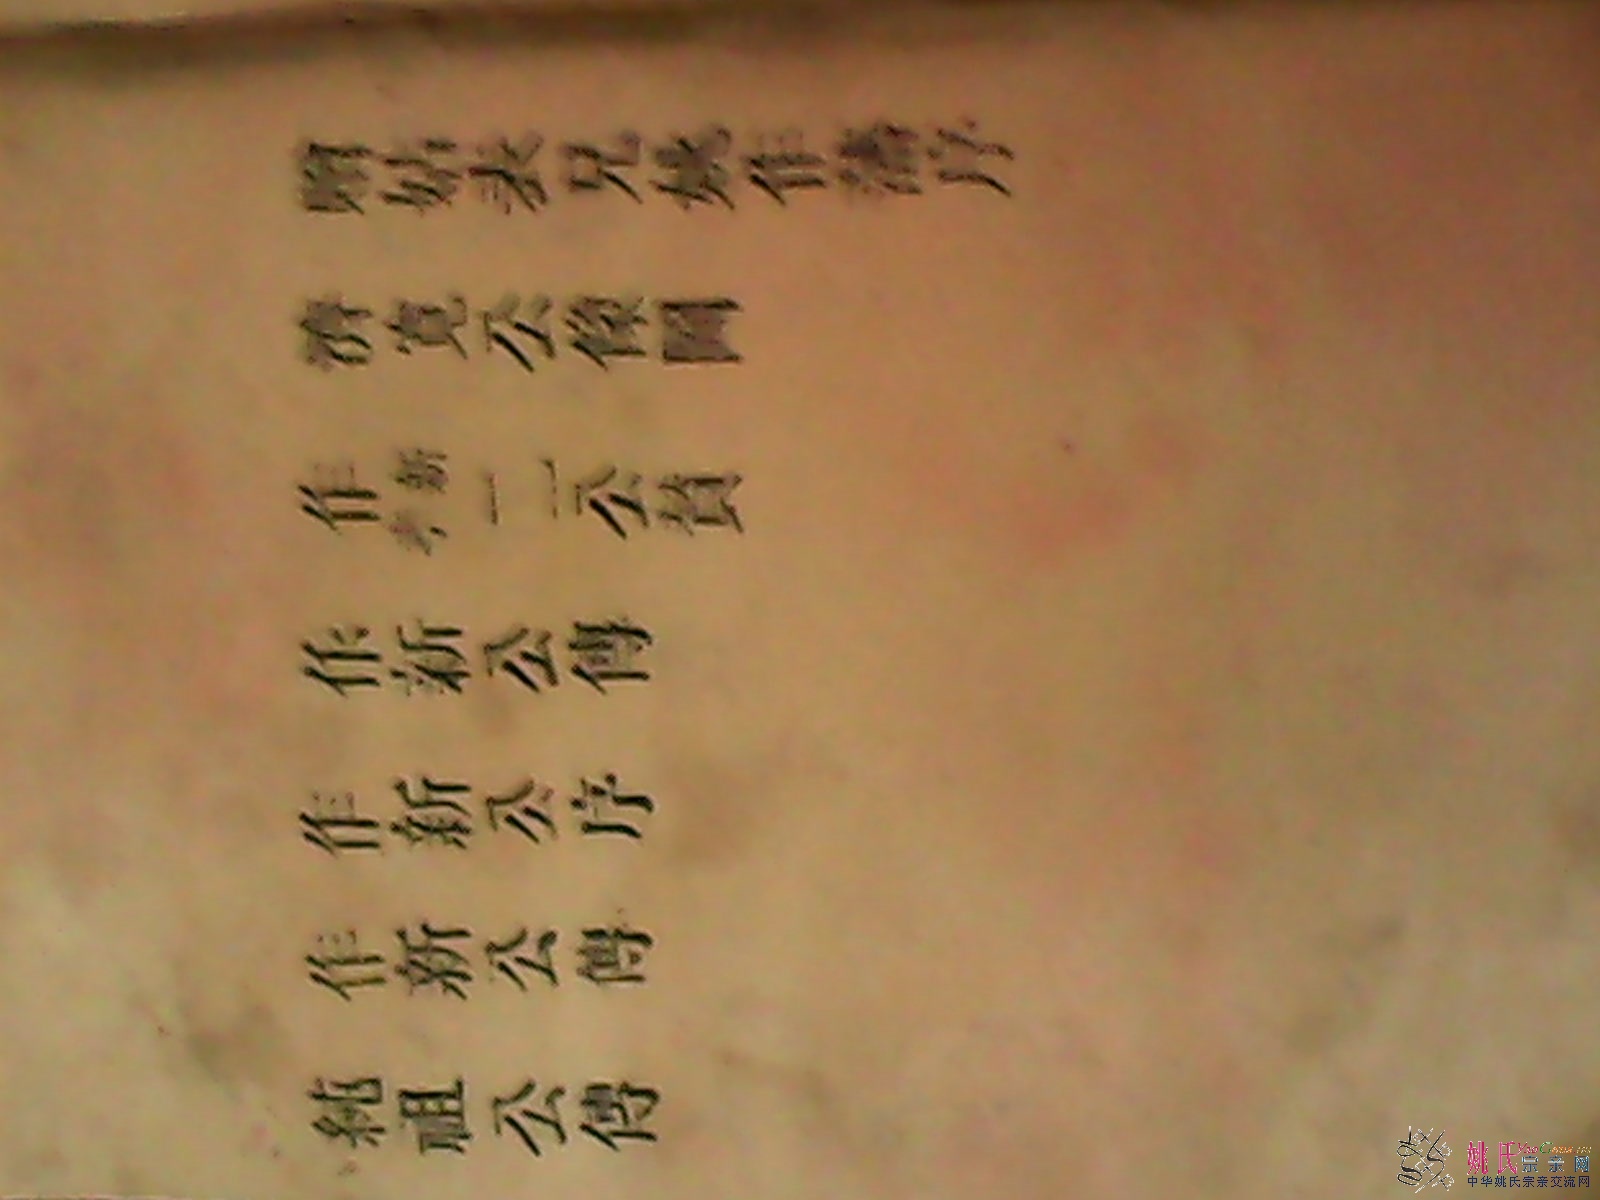 姑表兄姚作序
公像圖
作新二公贊
作新公傳
作新公序
作新公傳
純祖公傳
姚氏宗亲网
中华姚氏宗亲交流网